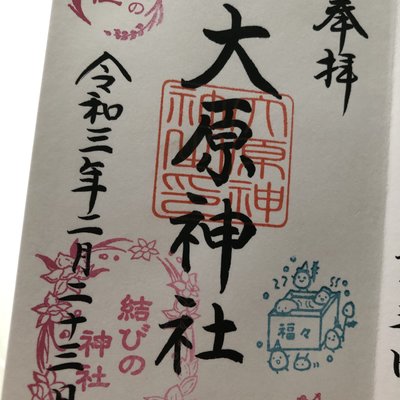 奉拝
大原神社
大原神社印
福々
令和三年二月二十二日
結びの
神社
の